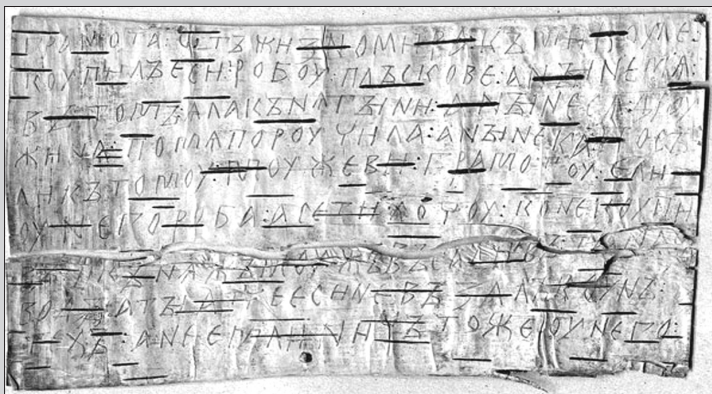 грамота : ѿтъ жизномира : къ микоуле :
коупилъ еси : робоу : плъскове : а нꙑне мѧ :
въ томъ : ѧла кънѧгꙑни : а нꙑне сѧ дроу
жина : по мѧ пороучила : а нꙑне ка : посъ
ли къ томоу : моужеви : грамотоу : ели
оу него роба : а се ти хочоу : коне коупи
въ : и кънѧжъ моужъ въсадивъ : та на съ
водꙑ : а тꙑ атче еси не възалъ коунъ :
техъ : а не емли : ничъто же оу него :